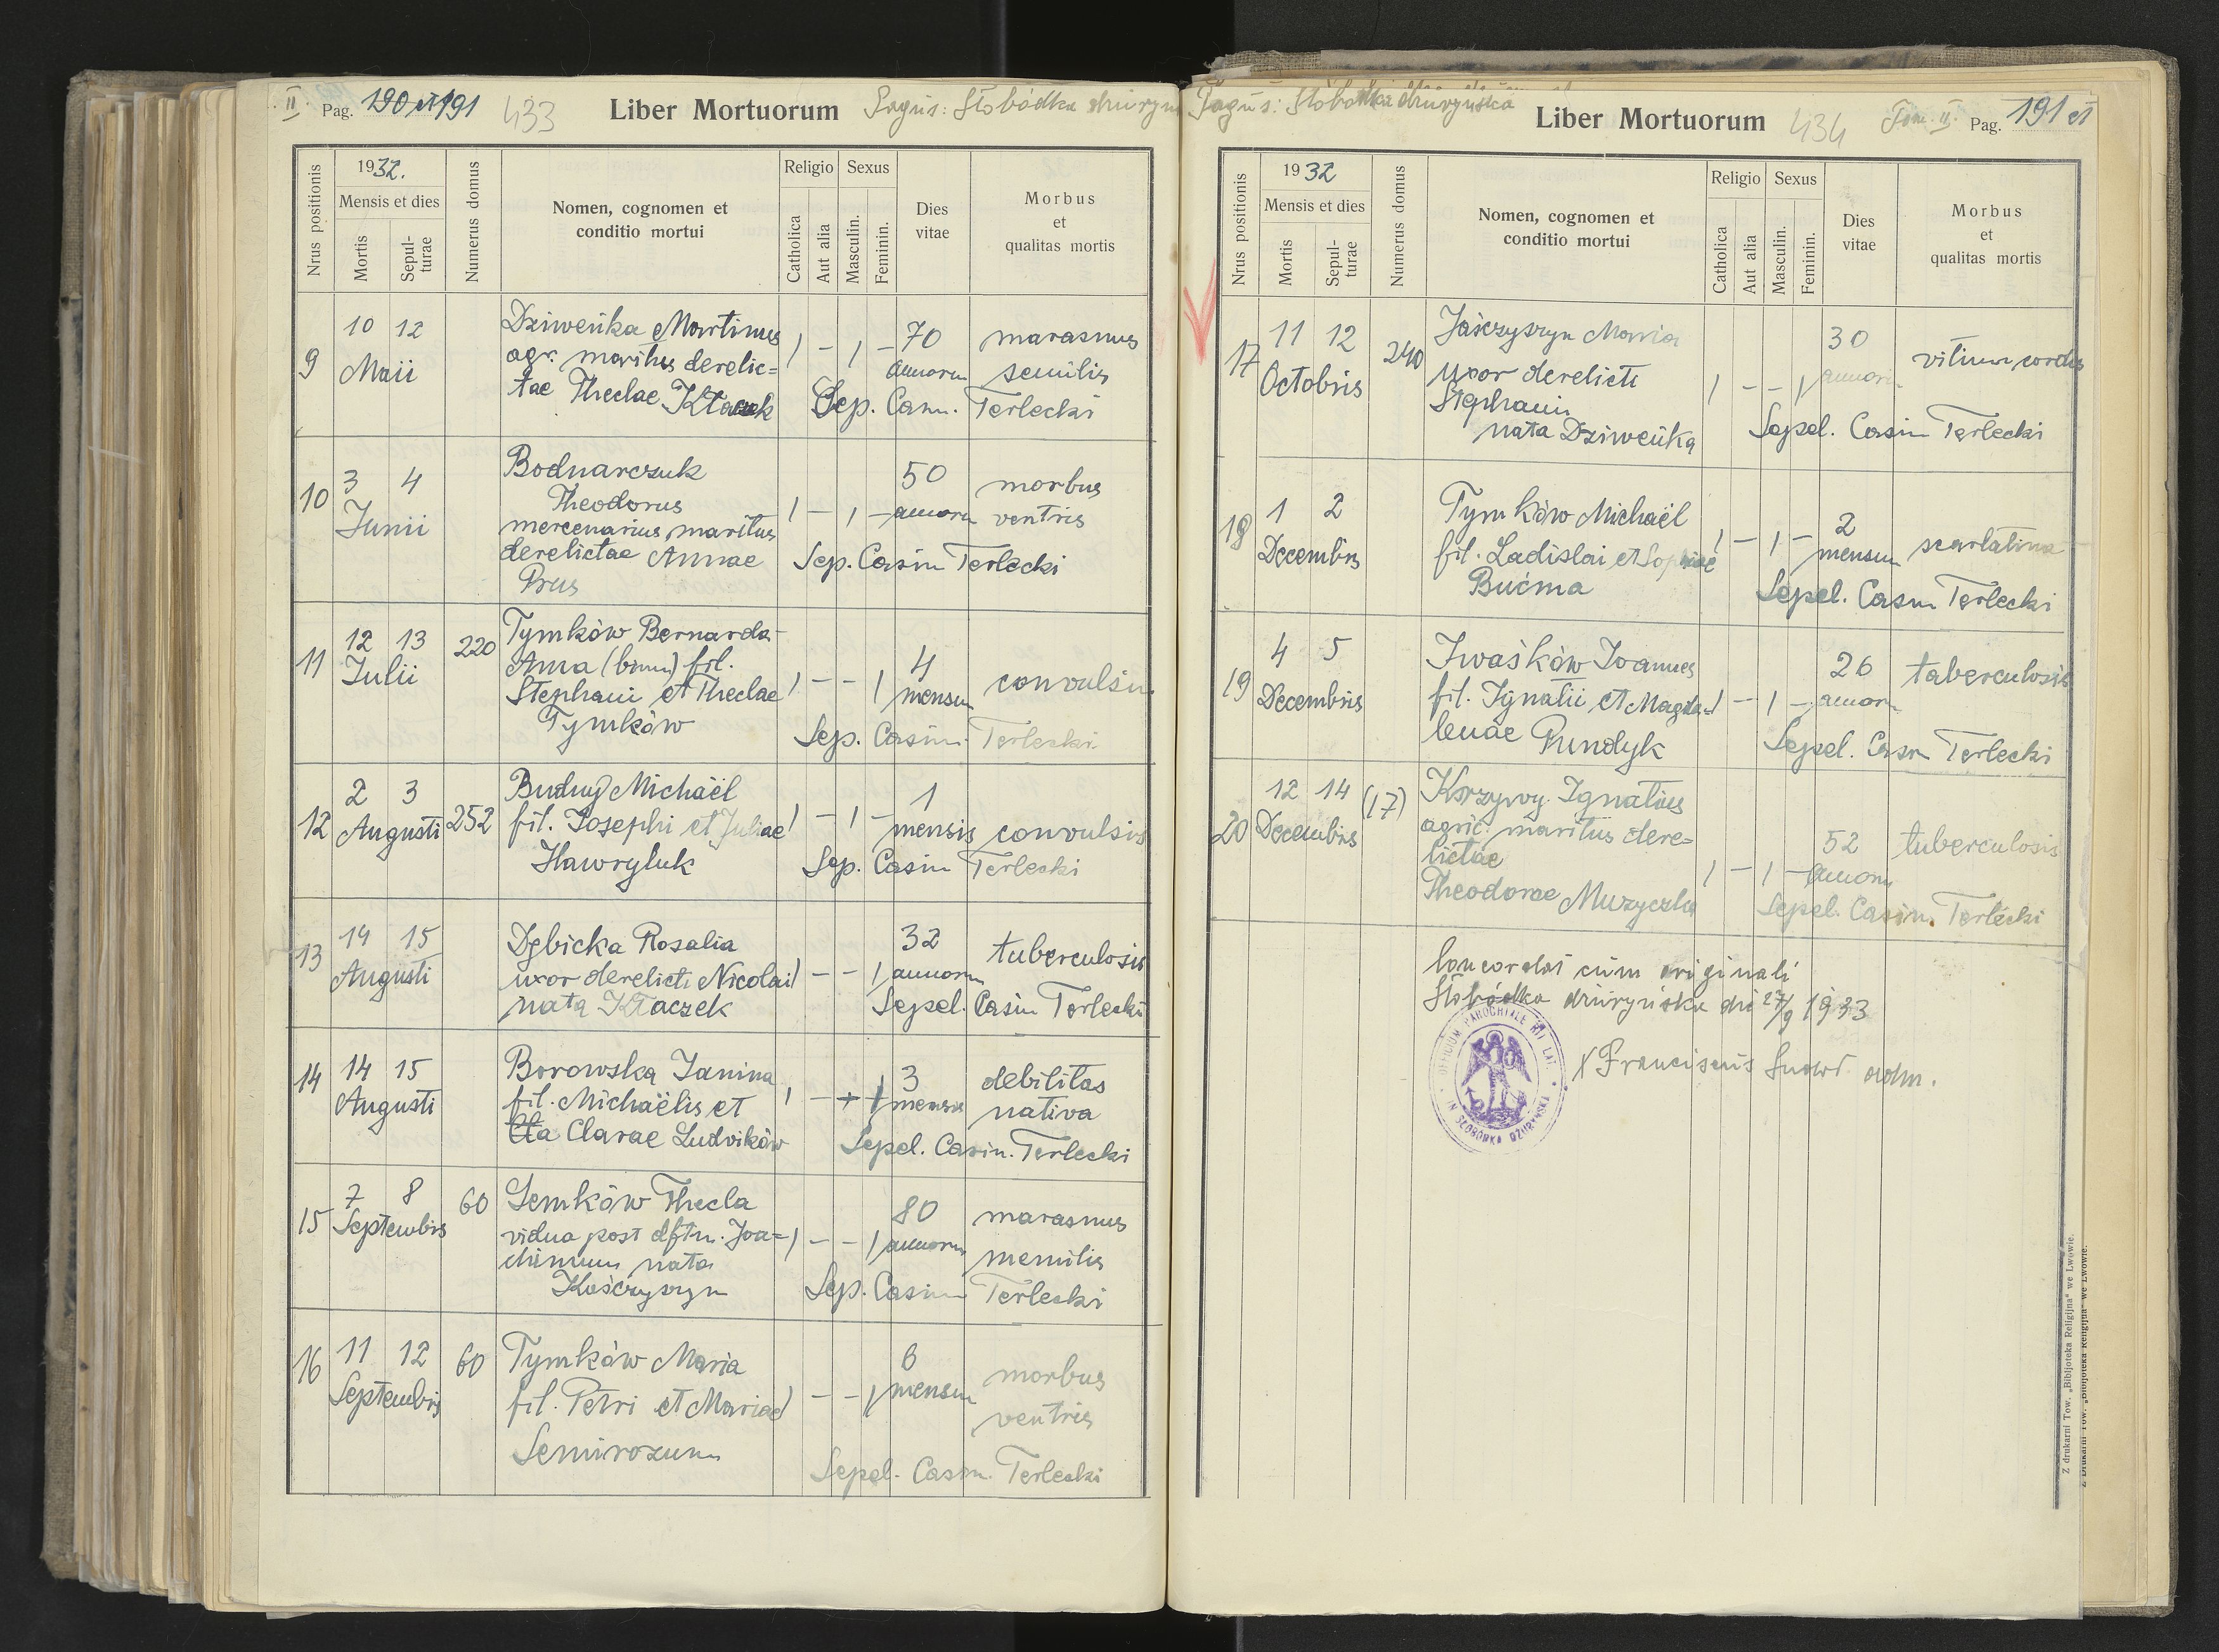 II. Pag. 190 et 191 433 Liber Mortuorum Pagus: Słobódka
Nrus positionis
1932.
Mensis et dies
Mortis
Sepul-
turae
Numerus domus
Nomen, cognomen et
conditio mortui
Religio
Catholica
Aut alia
Sexus
Masculin.
Feminin.
Dies
vitae
Morbus
et
qualitas mortis
9 10 12
Maii
Dziweńka Martinus
agr. maritus derelic=
tae Theclae
1 - 1 - 70
annorum
marasmus
senilis
Sep. Casim. Terlecki
10 3 4
Junii
Bodnarczuk
Theodorus
mercenarius, maritus
derelictae Annae
Prus
1 - 1 - 50
annorum
morbus
ventris
Sep. Casim Terlecki
11 12 13
Julii
220
Tymków Bernarda-
Anna (binom) fil.
Stephani et Theclae
Tymków
1 - - 1 4
mensum
convulsiu.
Sep. Casim. Terlecki
12 2 3
Augusti
252
Budnyj Michaël
fil. Josephi et Juliae
Hawryluk
1 - 1 - 1
mensis
convulsis
Sep. Casim Terlecki
13 14 15
Augusti
Dębicka Rosalia
uxor derelicti Nicolai
nata Kłaczek
1 - - 1 32
annorum
tuberculosis
Sepel. Casim Terlecki
14 14 15
Augusti
Borowska Janina
fil. Michaëlis et
Clarae Ludwików
1 - + 1 3
mensis
debilitas
nativa
Sepel. Casim. Terlecki
15 7 8
Septembris
60
Semków Thecla
vidua post dftm. Joa=
chimum nata
Kośczyszyn
1 - - 1 80
annorum
marasmus
menilis
Sep. Casim Terlecki
16 11 12
Septembris
60
Tymków Maria
fil. Petri et Mariae
Semirozum
1 - - 1 6
mensum
morbus
ventris
Sepel. Casim. Terlecki
Pagus: Słobódka dżuryńska
Liber Mortuorum 434 Tom. II. Pag. 191 et
Nrus positionis
1932
Mensis et dies
Mortis
Sepul-
turae
Numerus domus
Nomen, cognomen et
conditio mortui
Religio
Catholica
Aut alia
Sexus
Masculin.
Feminin.
Dies
vitae
Morbus
et
qualitas mortis
17 11 12
Octobris
240
Jaśczyszyn Maria
uxor derelicti
Stephani
nata Dziweńka
1 - - 1 30
annorum
vitium cordis
Sepel. Casim Terlecki
18 1 2
Decembris
Tymków Michaël
fil. Ladislai et Sophiae
Bućma
1 - 1 - 2
mensum
scarlatina
Sepel. Casim Terlecki
19 4 5
Decembris
Iwaśków Joannes
fil. Ignatii et Magda=
lenae Pundyk
1 - 1 - 26
annorum
tuberculosis
Sepel. Casim Terlecki
20 12 14
Decembris
(17)
Krzywyj Ignatius
agric. maritus dere=
lictae
Theodorae Muzyczka
1 - 1 - 52
annorum
tuberculosis
Sepel. Casim. Terlecki
Concordat cum originali
Słobódka dżuryńska 27/9 1933
OFFICIUM PAROCHIALE RIT. LAT.
IN SŁOBÓDKA DŻURYŃSKA
X Franciscus adm.
Z drukarni Tow. „Bibljoteka Religijna" we Lwowie.
Z Drukarni Tow. „Bibljoteka Religijna" we Lwowie.